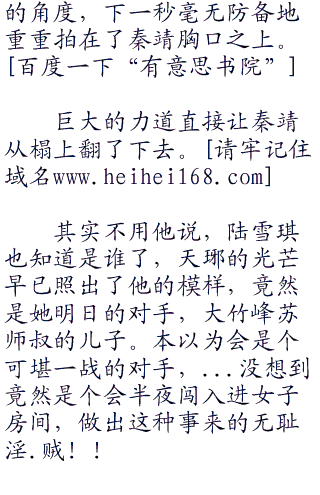 的角度，下一秒毫无防备地
重重拍在了秦靖胸口之上。
[百度一下“有意思书院”]
巨大的力道直接让秦靖
从榻上翻了下去。[请牢记住
域名www.heihei168.com]
其实不用他说，陆雪琪
也知道是谁了，天琊的光芒
早已照出了他的模样，竟然
是她明日的对手，大竹峰苏
师叔的儿子。本以为会是个
可堪一战的对手，...没想到
竟然是个会半夜闯入进女子
房间，做出这种事来的无耻
淫.贼！！